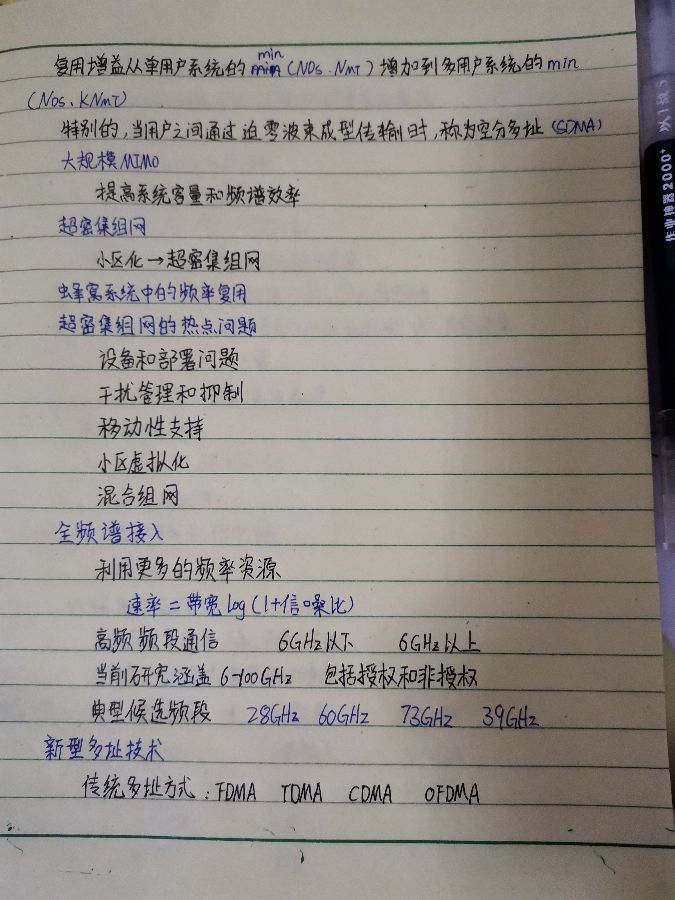 复用增益从单用户系统的min(NOS、NMT)增加到多用户系统的min
(NOS、KNMT)
特别的,当用户之间通过迫零波束成型传输时,称为空分多址(SDMA)
大规模MIMO
提高系统容量和频谱效率
超密集组网
小区化→超密集组网
蜂窝系统中的频率复用
超密集组网的热点问题
设备和部署问题
干扰管理和抑制
移动性支持
小区虚拟化
混合组网
全频谱接入
利用更多的频率资源
速率=带宽log(1+信噪比)
高频频段通信 6GHz以下 6GHz以上
当前研究涵盖6-100GHz 包括授权和非授权
典型候选频段 28GHz 60GHz 73GHz 39GHz
新型多址技术
传统多址方式:FDMA TDMA CDMA OFDMA
作业神器2000+